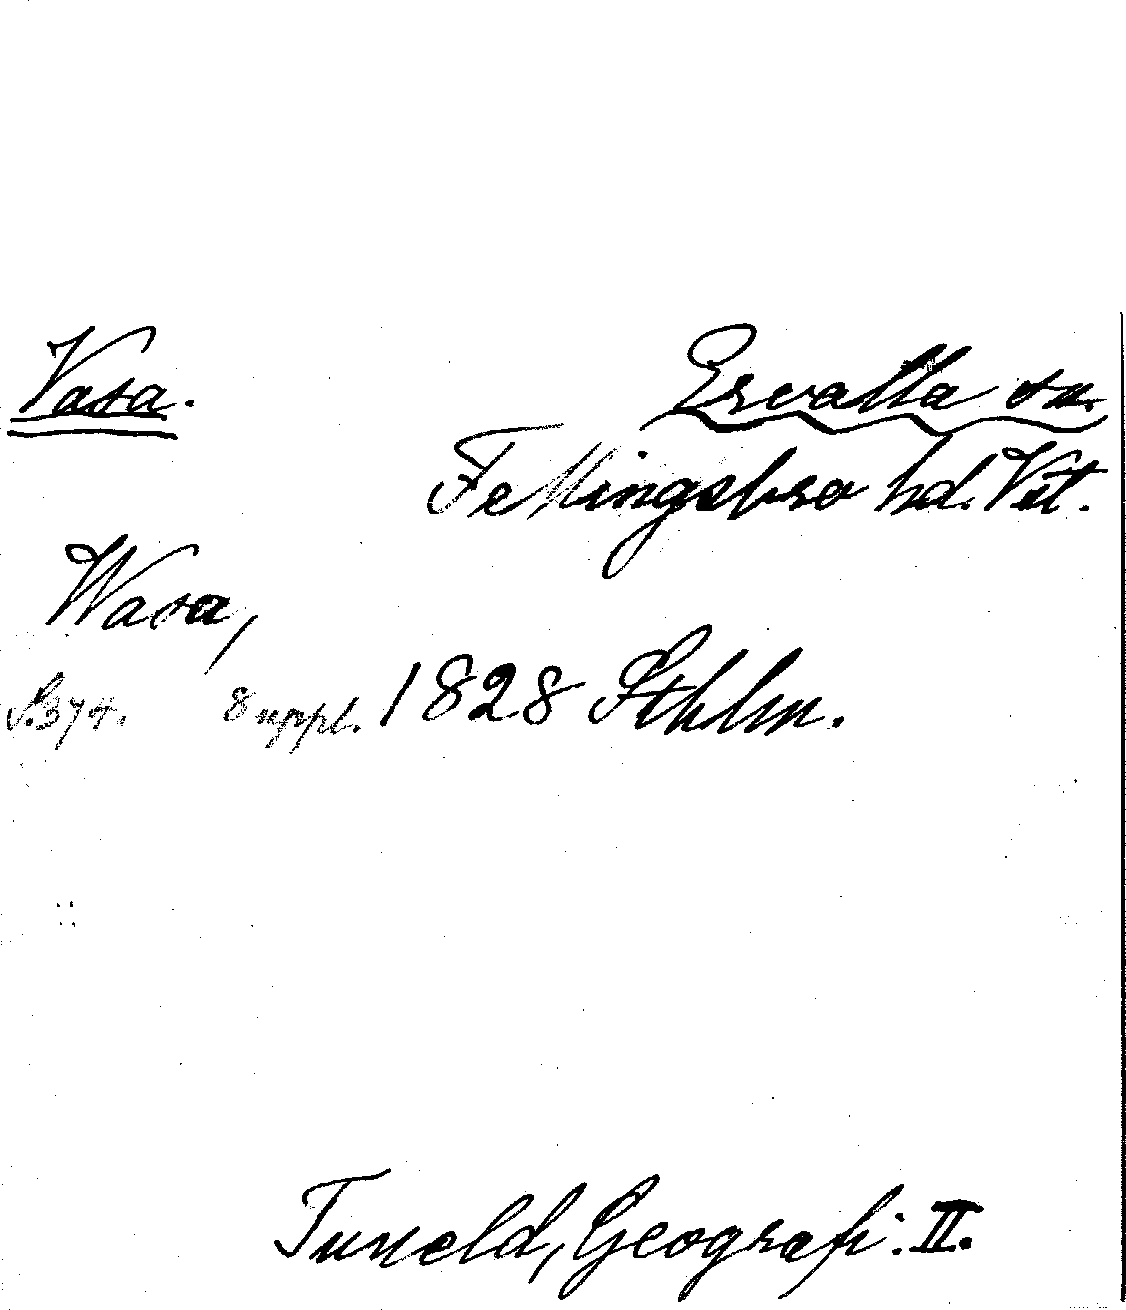 Vasa. Ervalla sn.
Fellingsbro hd. Vst.
Wasa,
S. 374. 8 uppl. 1828 Sthlm.
Tuneld, Geografi: II.